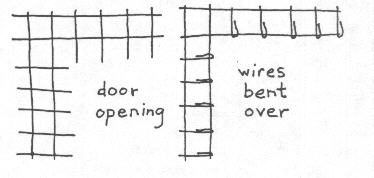 door
opening
wires
bent
over